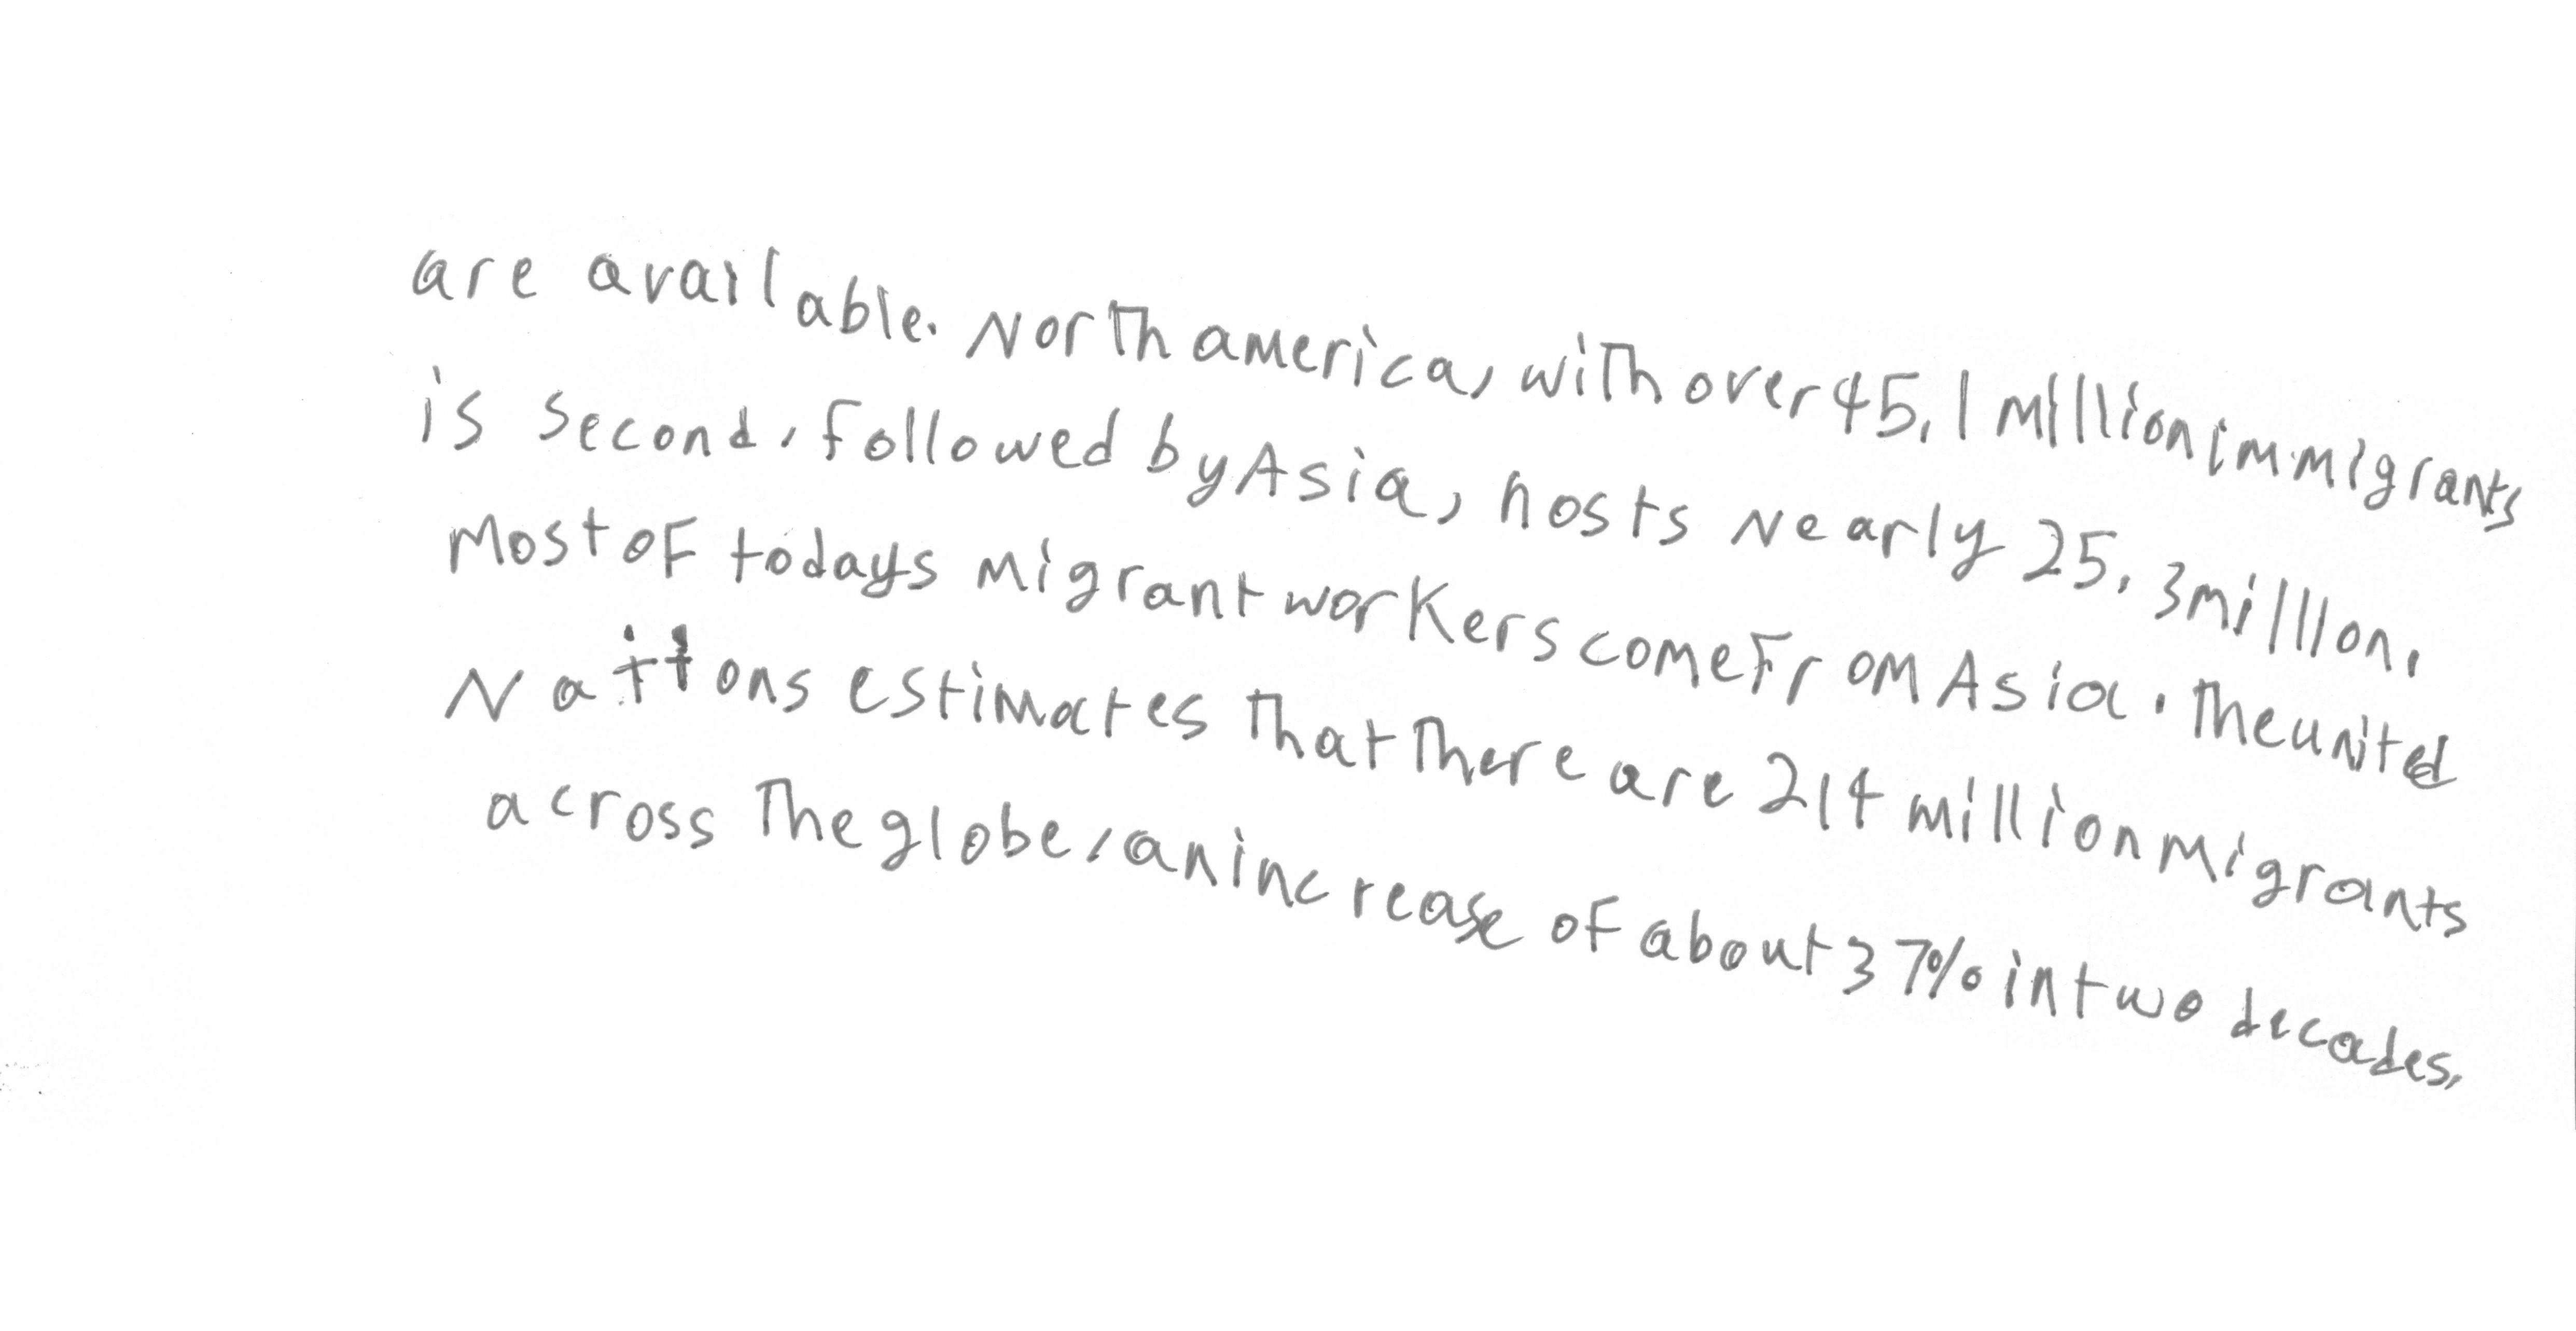 are available. North america, with over 45,1 million immigrants
is second, followed by Asia, hosts nearly 25,3 million,
Most of todays migrant workers come from Asia. The united
Nations estimates that there are 214 million migrants
across the globe, an increase of about 37% in two decades,